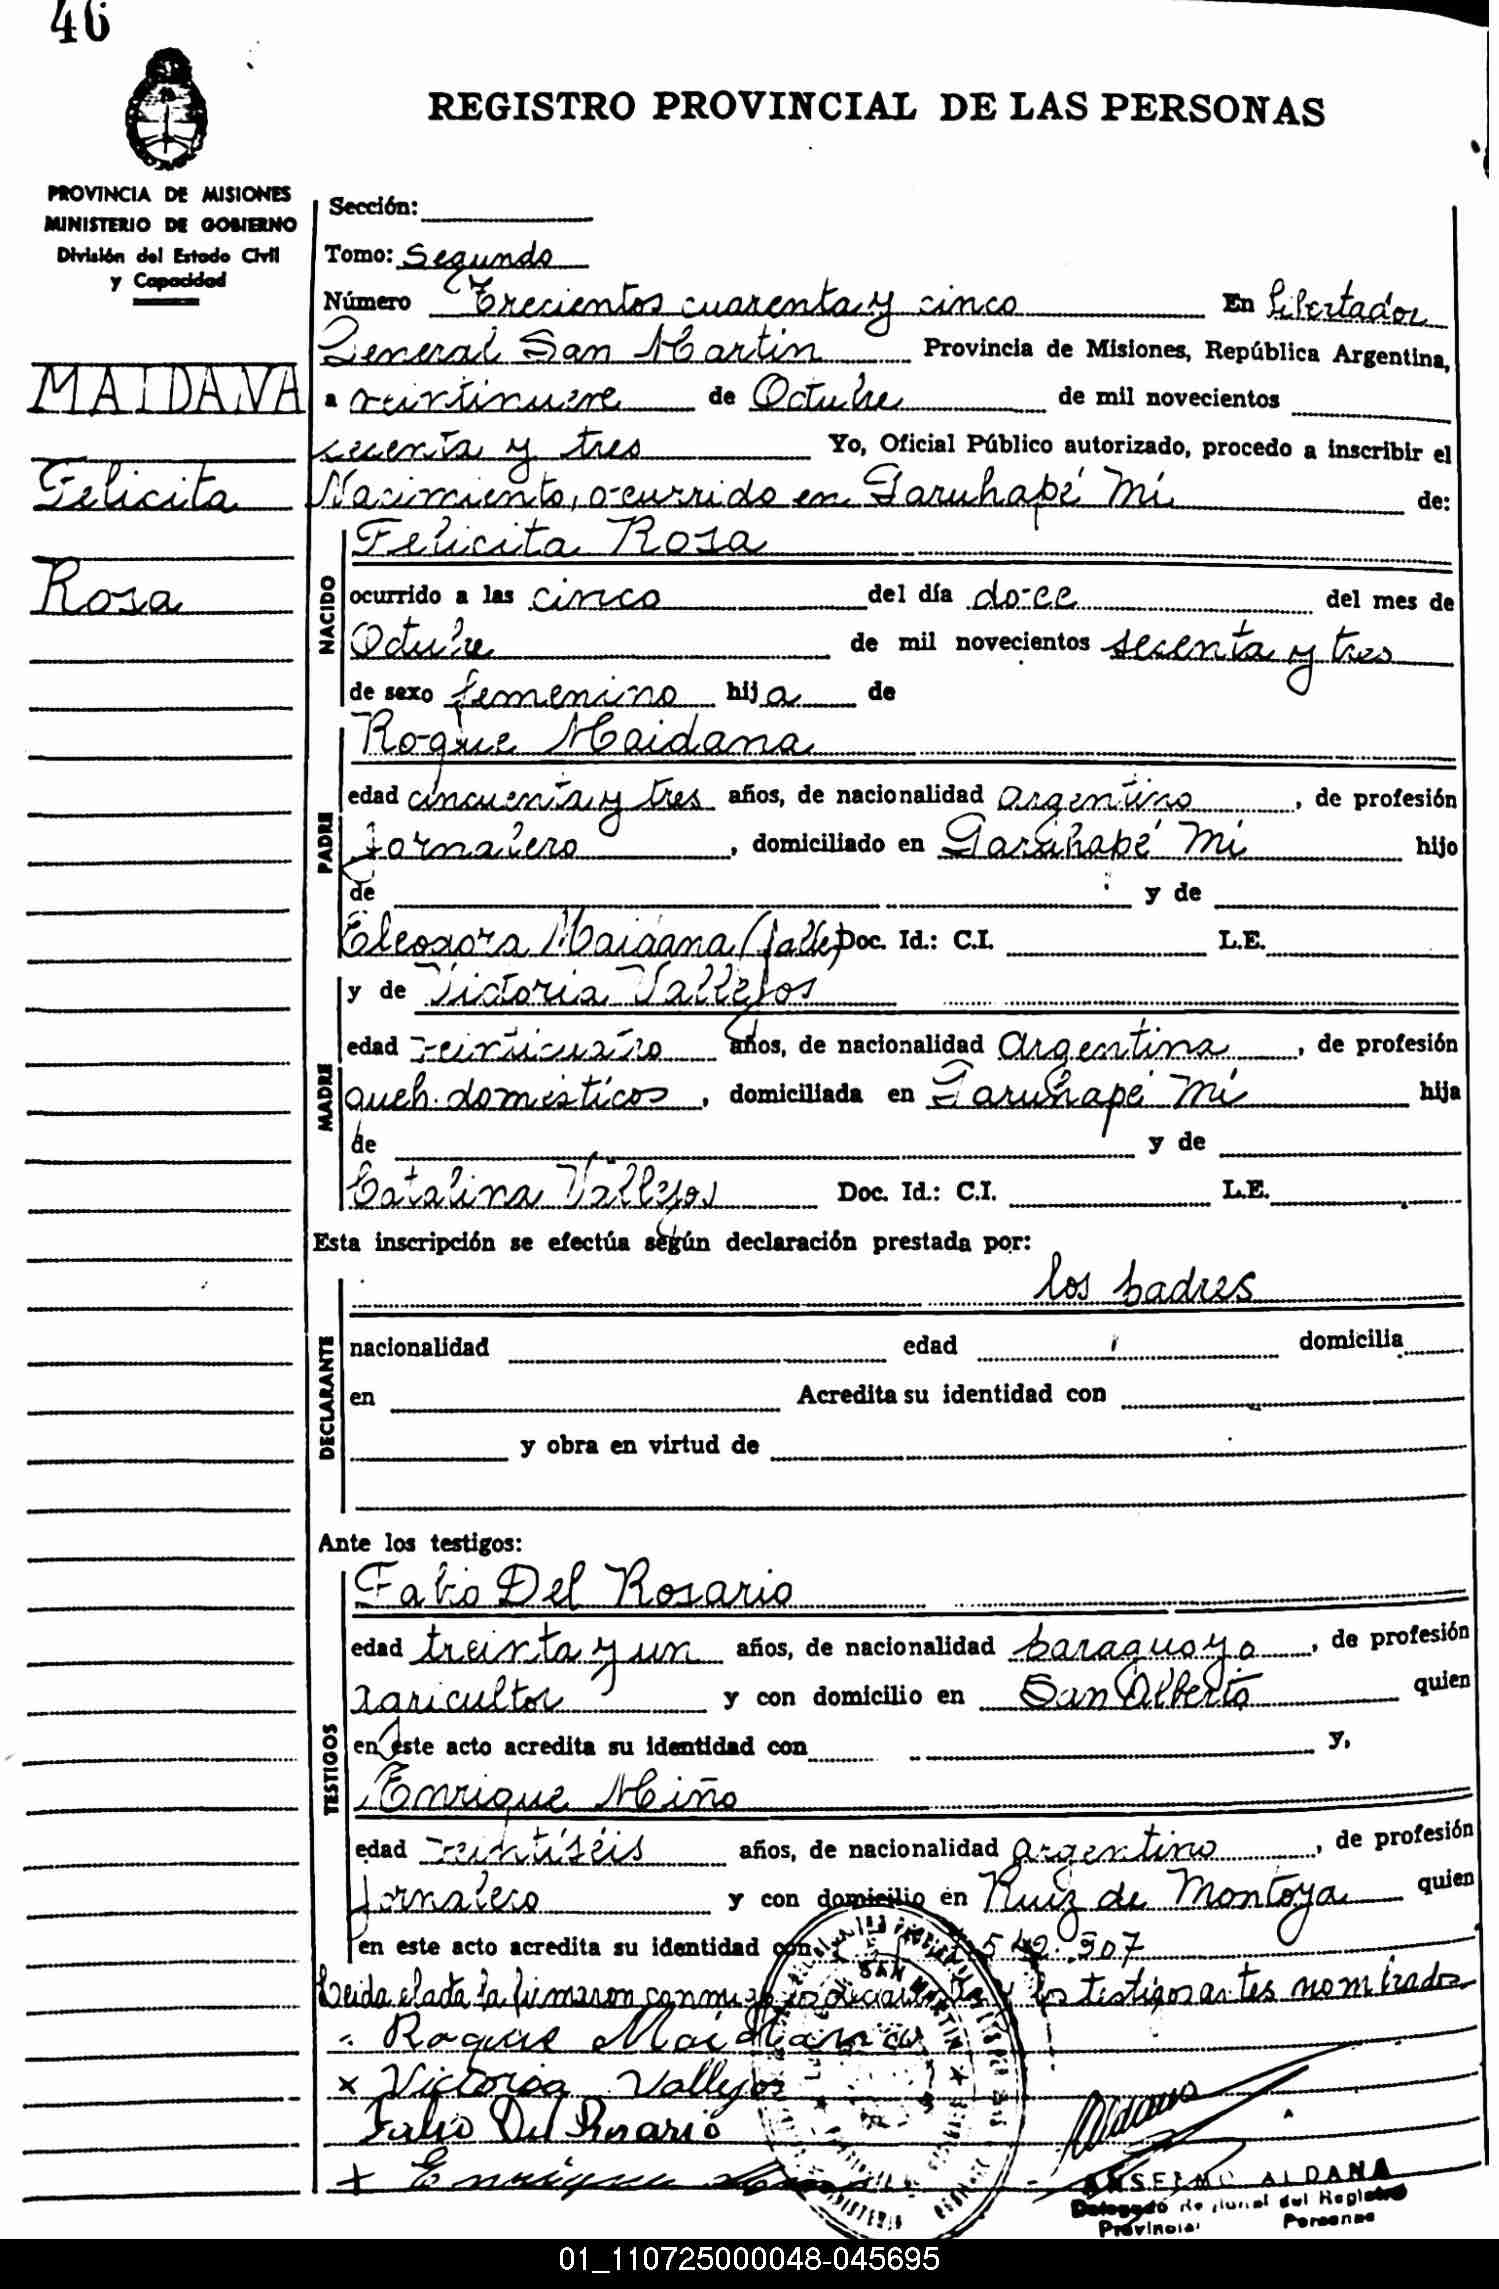 46
REGISTRO PROVINCIAL DE LAS PERSONAS
PROVINCIA DE MISIONES
MINISTERIO DE GOBIERNO
División del Estado Civil
y Capacidad
MAIDANA
Felicita
Rosa
Sección:
Tomo: Segundo
Número Trecientos cuarenta y cinco En Libertador
General San Martin Provincia de Misiones, República Argentina,
a veintinueve de Octubre de mil novecientos
secenta y tres Yo, Oficial Público autorizado, procedo a inscribir el
Nacimiento, ocurrido en Garuhapé Mí de:
NACIDO
Felicita Rosa
ocurrido a las cinco del día doce del mes de
Octubre de mil novecientos secenta y tres
de sexo femenino hija de
PADRE
Roque Maidana
edad cincuenta y tres años, de nacionalidad argentino, de profesión
Jornalero, domiciliado en Garuhapé Mí hijo
de y de
Eleodora Maidana (falle) Doc. Id.: C.I. L.E.
MADRE
y de Victoria Vallejos
edad veinticuatro años, de nacionalidad Argentina, de profesión
queh. domésticos, domiciliada en Garuhapé Mí hija
de y de
Catalina Vallejos Doc. Id.: C.I. L.E.
Esta inscripción se efectúa según declaración prestada por:
DECLARANTE
los padres
nacionalidad edad domicilia
en Acredita su identidad con
y obra en virtud de
Ante los testigos:
TESTIGOS
Fabio Del Rosario
edad treinta y un años, de nacionalidad paraguayo, de profesión
agricultor y con domicilio en San Alberto quien
en este acto acredita su identidad con y,
Enrique Miño
edad veintiséis años, de nacionalidad argentino, de profesión
Jornalero y con domicilio en Ruiz de Montoya quien
en este acto acredita su identidad con 542.907
Leida el acta la firmaron conmigo y los testigos antes nombrados
Roque Maidana
x Victoria Vallejos
Fabio Del Rosario
+ Enrique
SAN MARTIN
Aldana
ANSELMO ALDANA
Delegado Regional del Registro
Provincial Personas
01_110725000048-045695